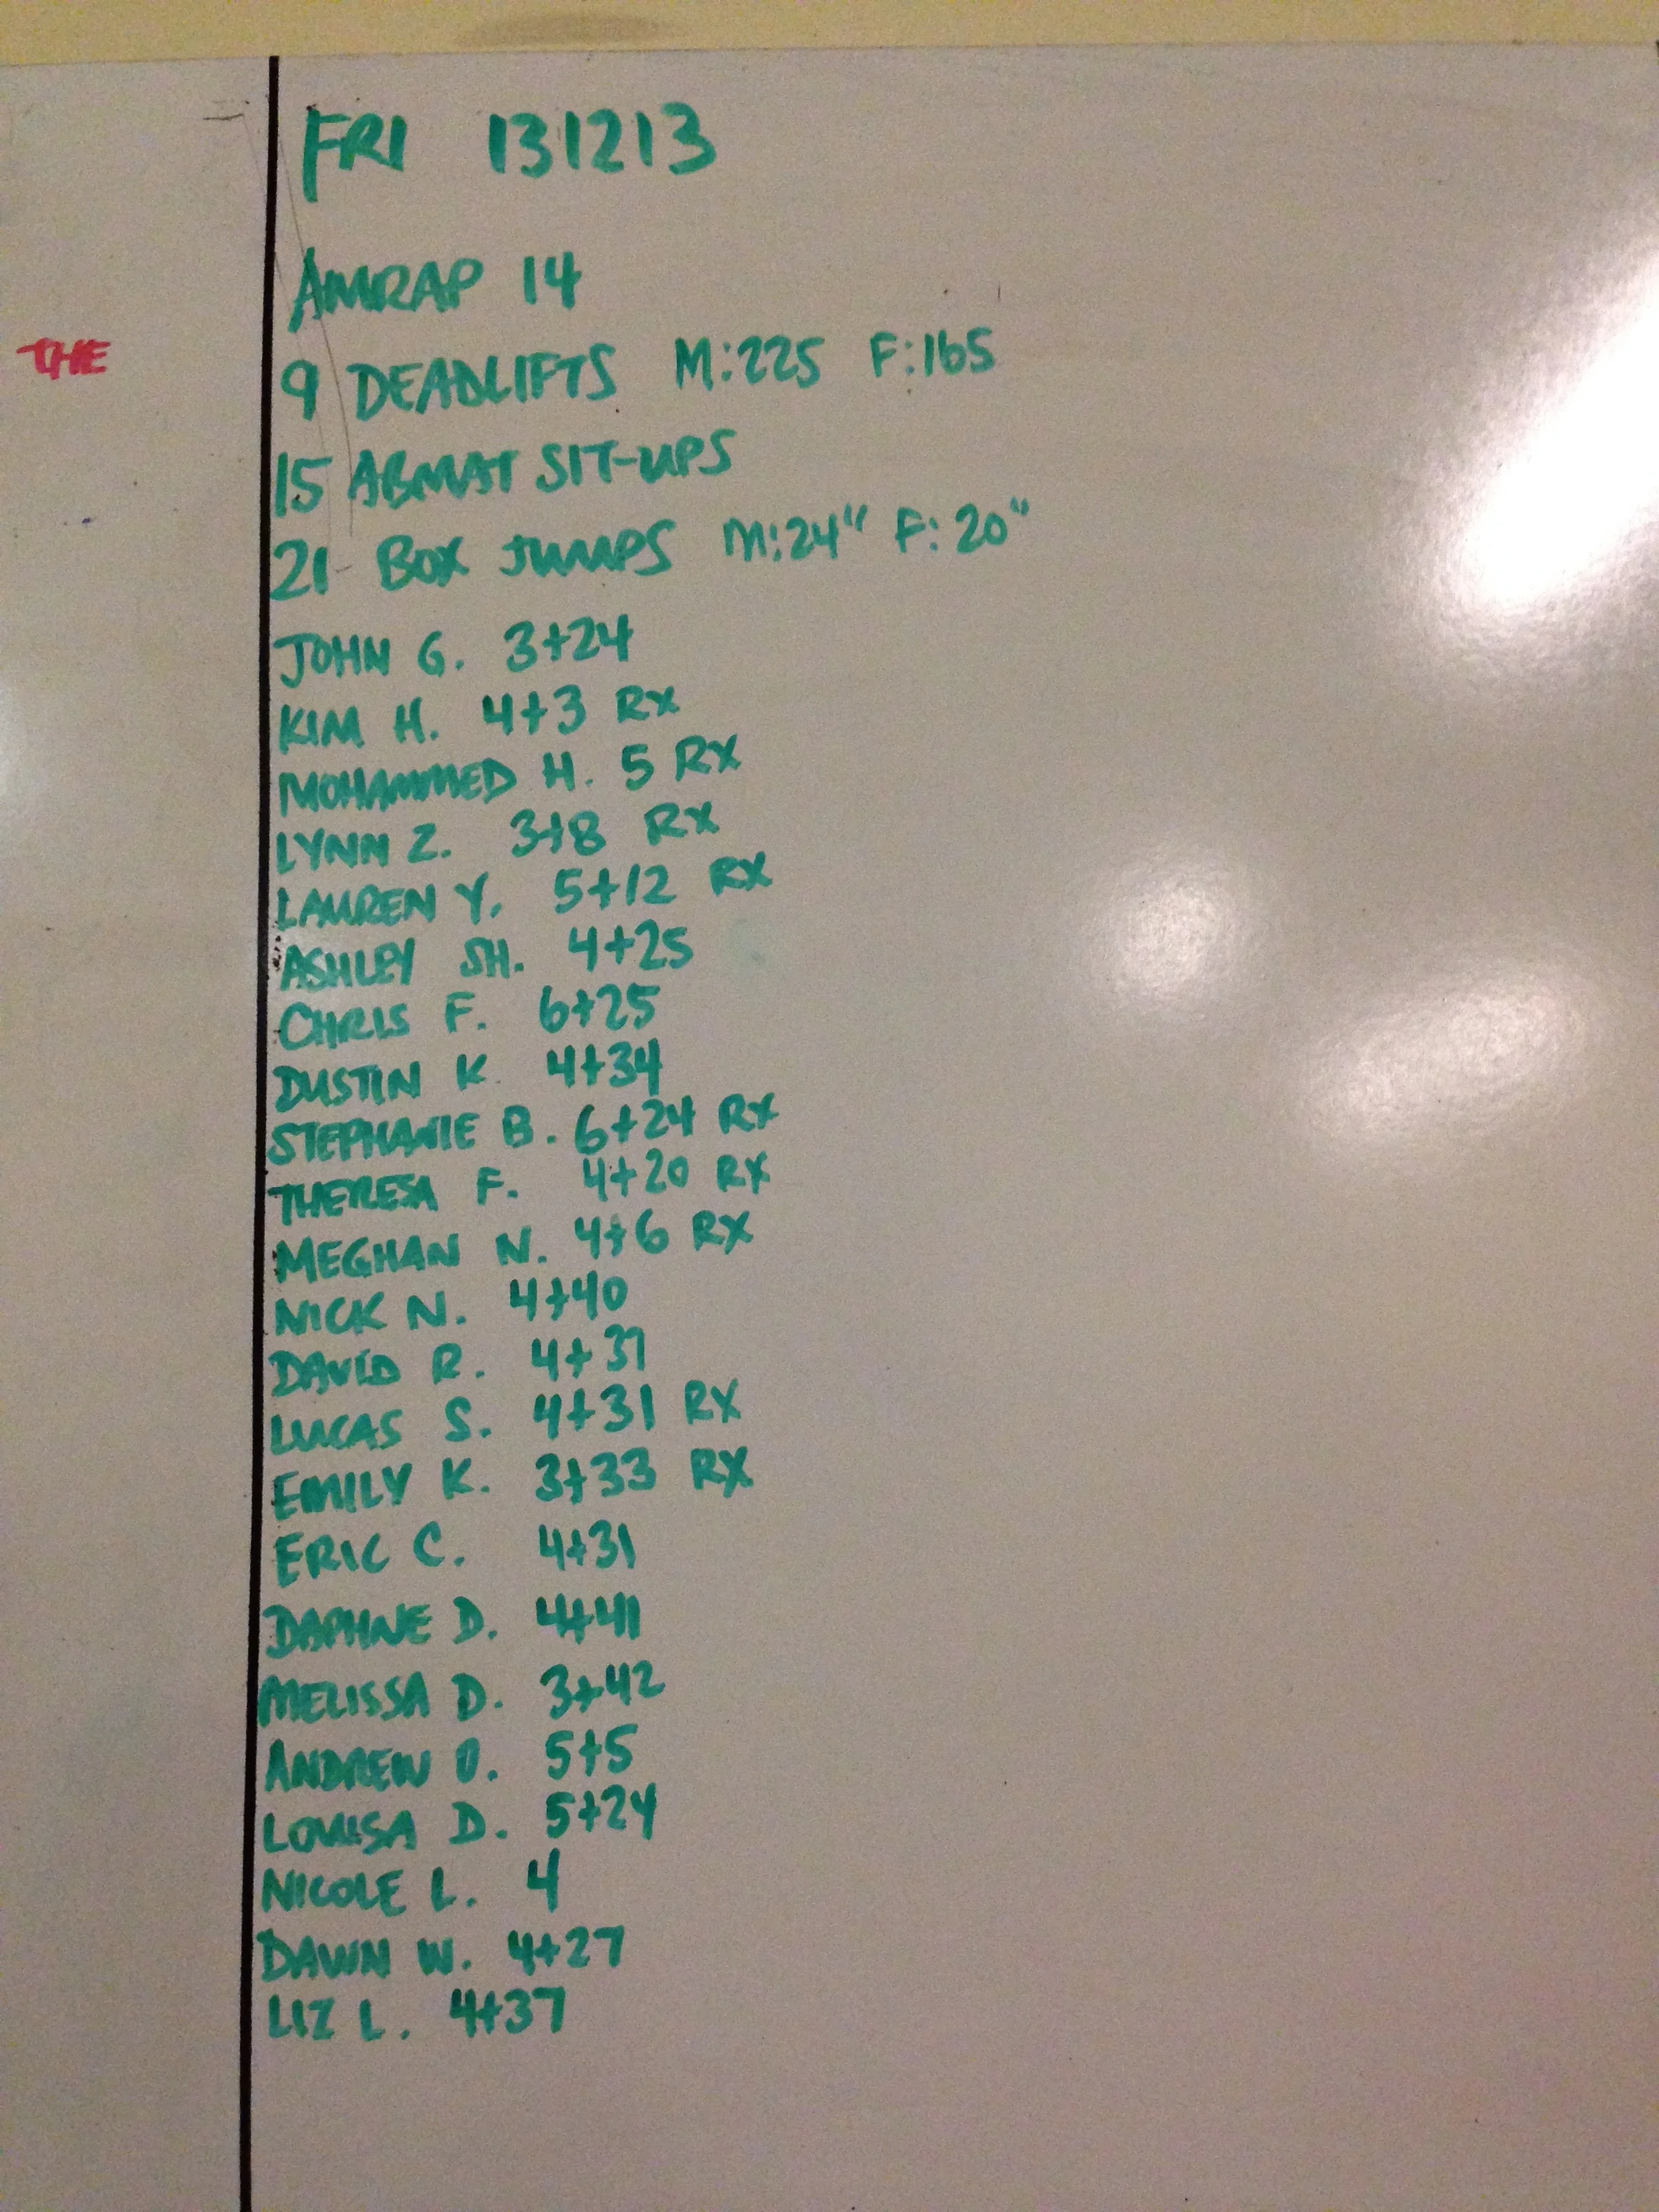 FRI 131213
AMRAP 14
THE
9 DEADLIFTS M:225 F:165
15 ABMAT SIT-UPS
21 BOX JUMPS M:24" F:20"
JOHN G. 3+24
KIM H. 4+3 RX
MOHAMMED H. 5 RX
LYNN Z. 3+8 RX
LAUREN Y. 5+12 RX
ASHLEY SH. 4+25
CHRIS F. 6+25
DUSTIN K. 4+34
STEPHANIE B. 6+24 RX
THERESA F. 4+20 RX
MEGHAN N. 4+6 RX
NICK N. 4+40
DAVID R. 4+31
LUCAS S. 4+31 RX
EMILY K. 3+33 RX
ERIC C. 4+31
DAPHNE D. 4+41
MELISSA D. 3+42
ANDREW O. 5+5
LOUISA D. 5+24
NICOLE L. 4
DAWN W. 4+27
LIZ L. 4+37